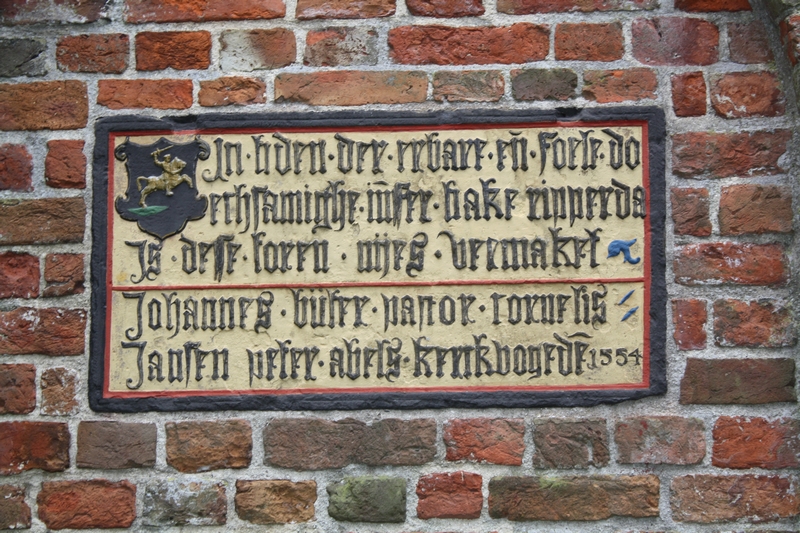 In · tiden · der · erbare · eñ · foele · do
echsamighe · iūfer · hake · ripperda
Is · dese · toren · nijes · vermaket
Johannes · büter · pastor · cornelis
Jansen peter · abels · kerkvogedē 1554